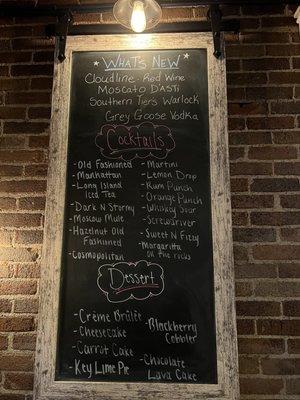 What's New
Cloudline - Red Wine
Moscato D'Asti
Southern Tiers Warlock
Grey Goose Vodka
Cocktails
-Old Fashioned
-Manhattan
-Long Island
Iced Tea
-Dark N Stormy
-Moscow Mule
-Hazelnut Old
Fashioned
-Cosmopolitan
-Martini
-Lemon Drop
-Rum Punch
-Orange Punch
-Whiskey Sour
-Screwdriver
-Sweet N Fizzy
-Margarita
on the rocks
Dessert
-Crème Brûlée
-Cheesecake
-Carrot Cake
-Key Lime Pie
-Blackberry
Cobbler
-Chocolate
Lava Cake